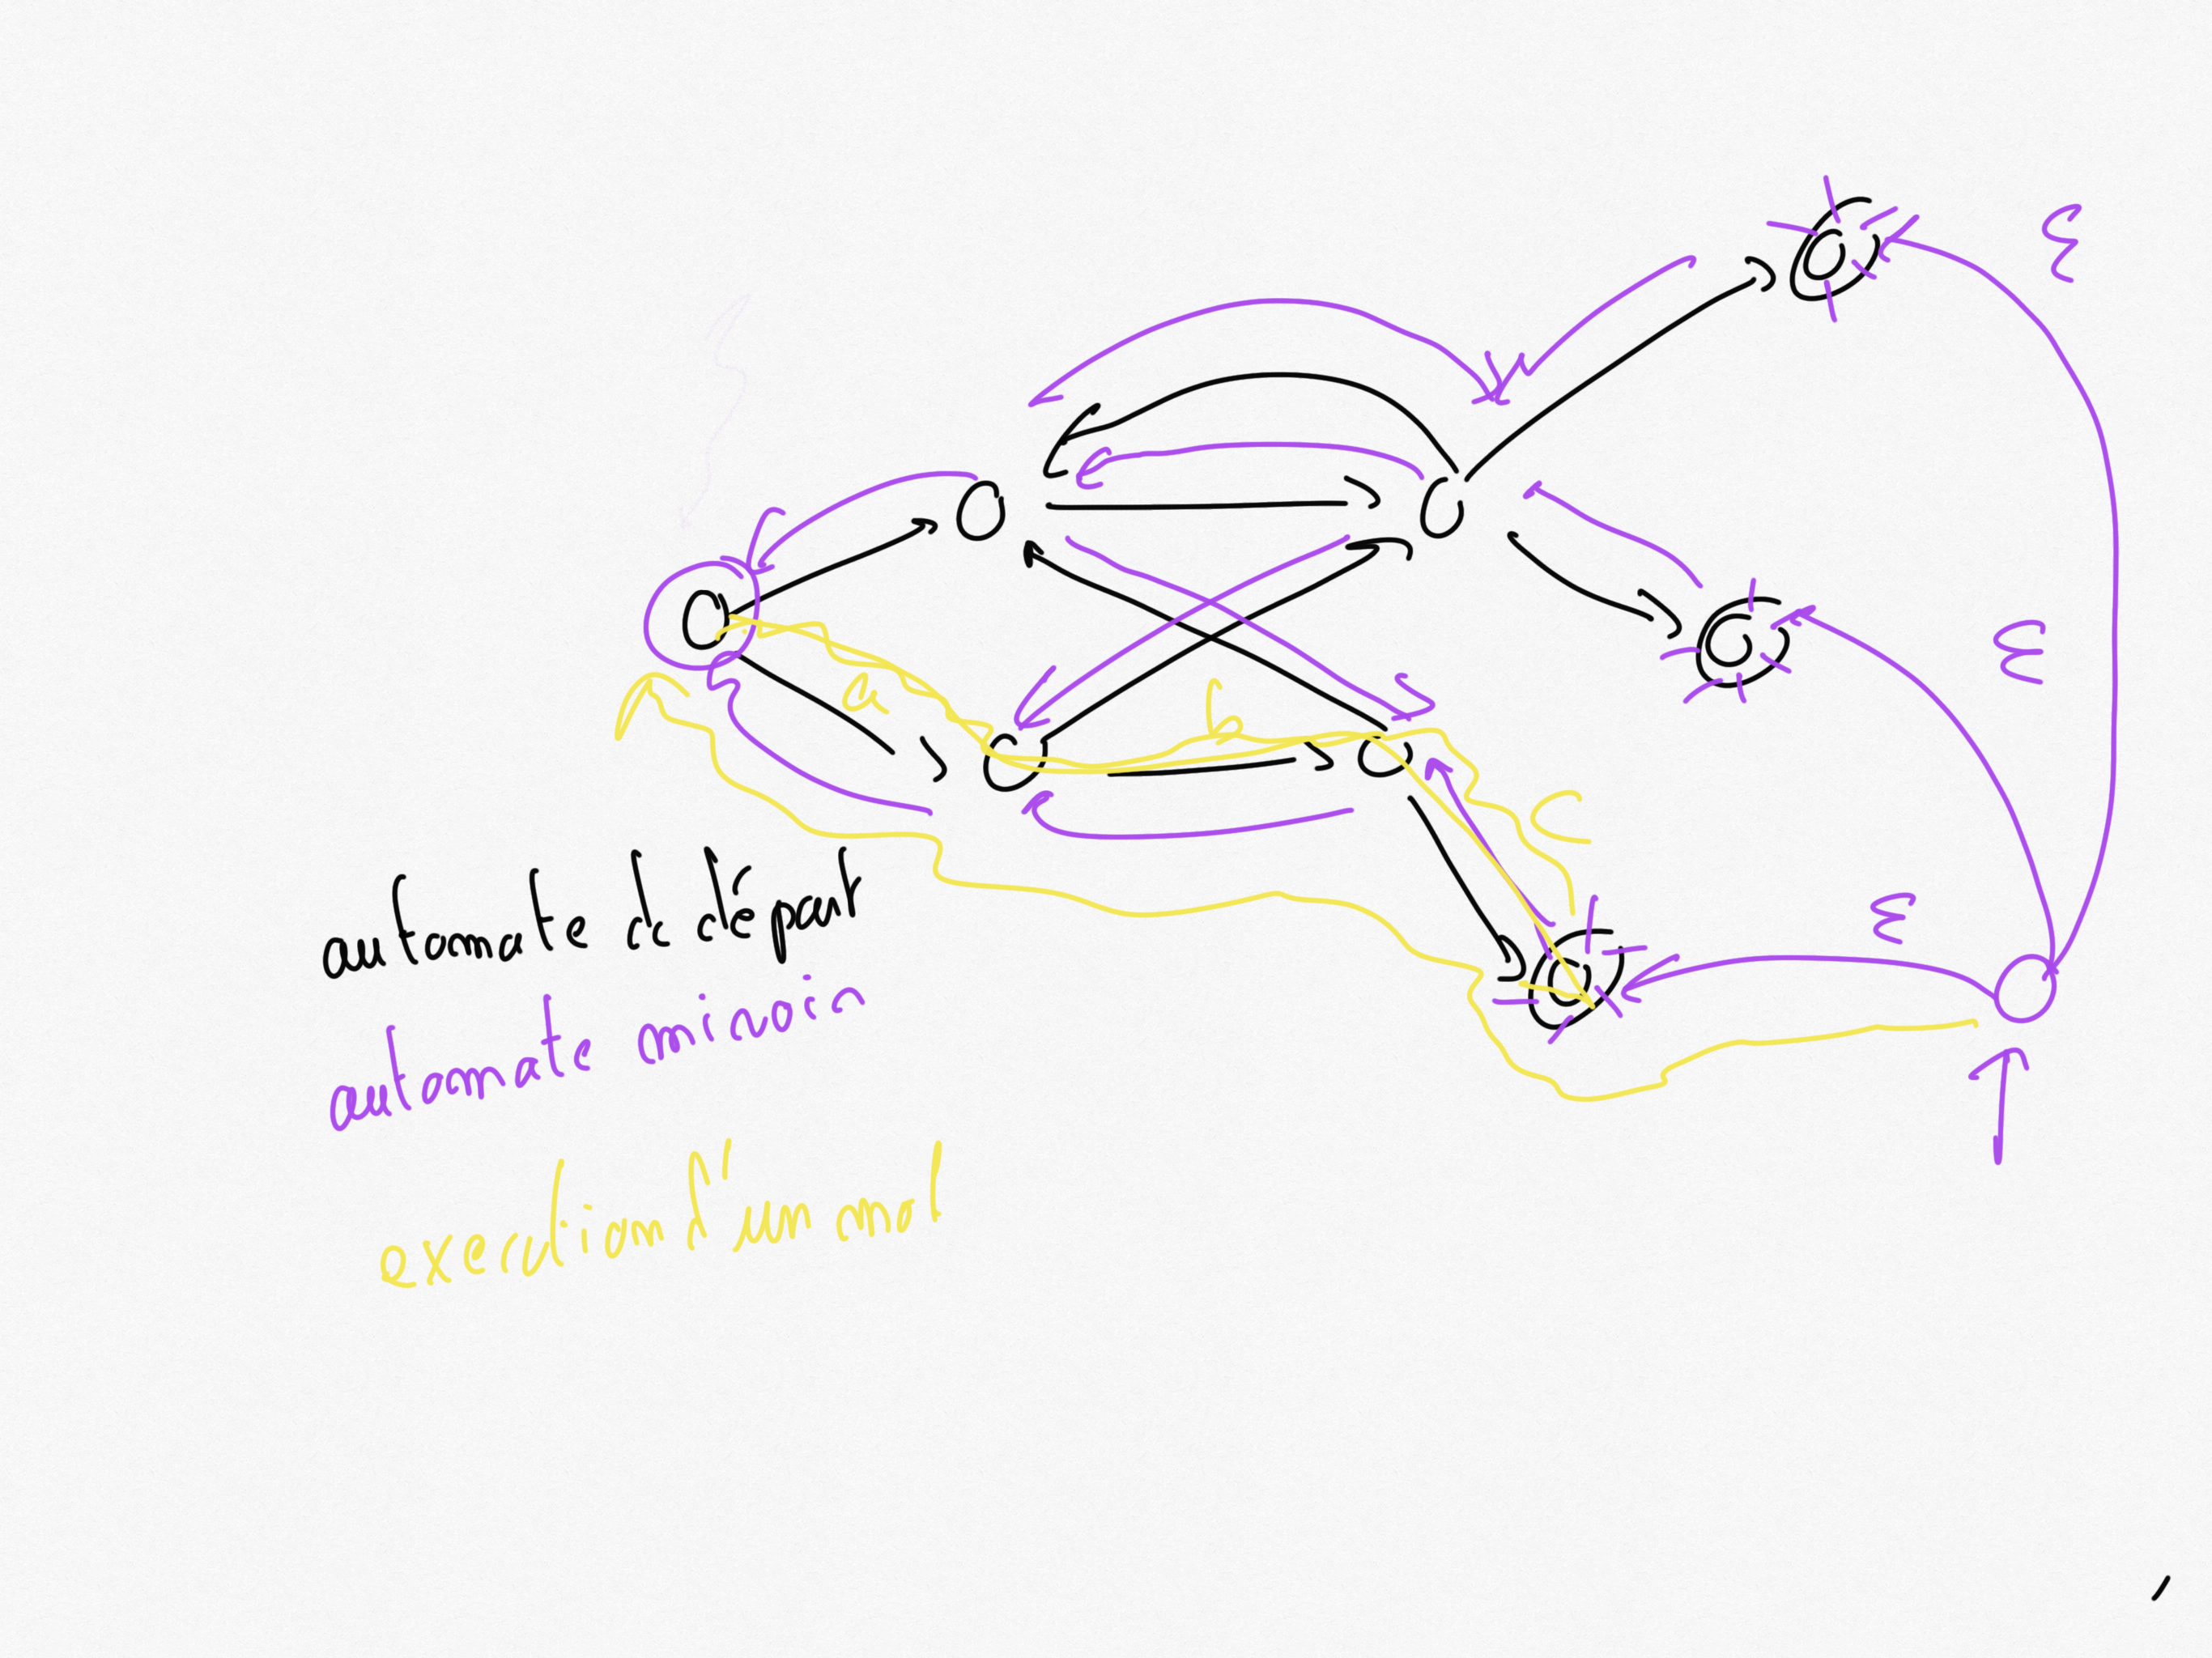 ε
ε
a
b
c
ε
automate de départ
automate miroir
execution d'un mot